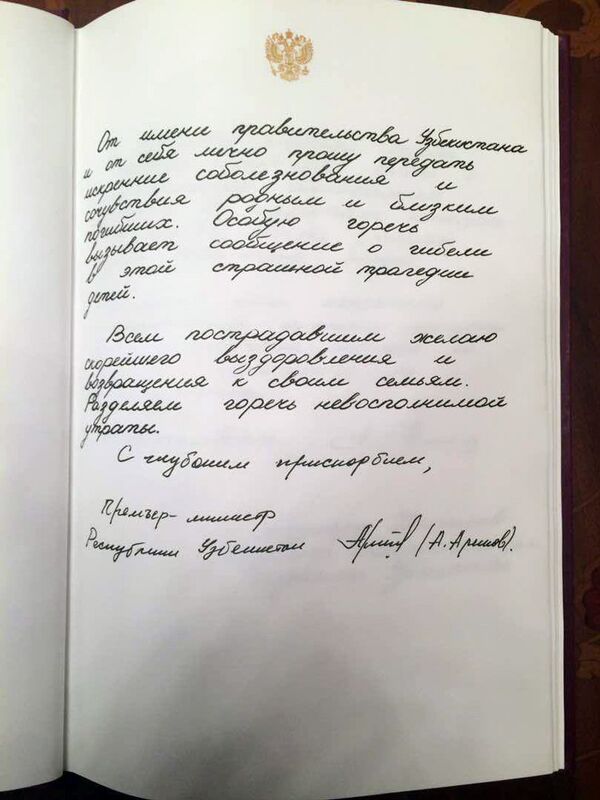 От имени правительства Узбекистана
и от себя лично прошу передать
искренние соболезнования и
сочувствия родным и близким
погибших. Особую горечь
вызывает сообщение о гибели
в этой страшной трагедии
детей.
Всем пострадавшим желаю
скорейшего выздоровления и
возвращения к своим семьям.
Разделяем горечь невосполнимой
утраты.
С глубоким прискорбием,
Премьер-министр
Республики Узбекистан (А. Арипов).